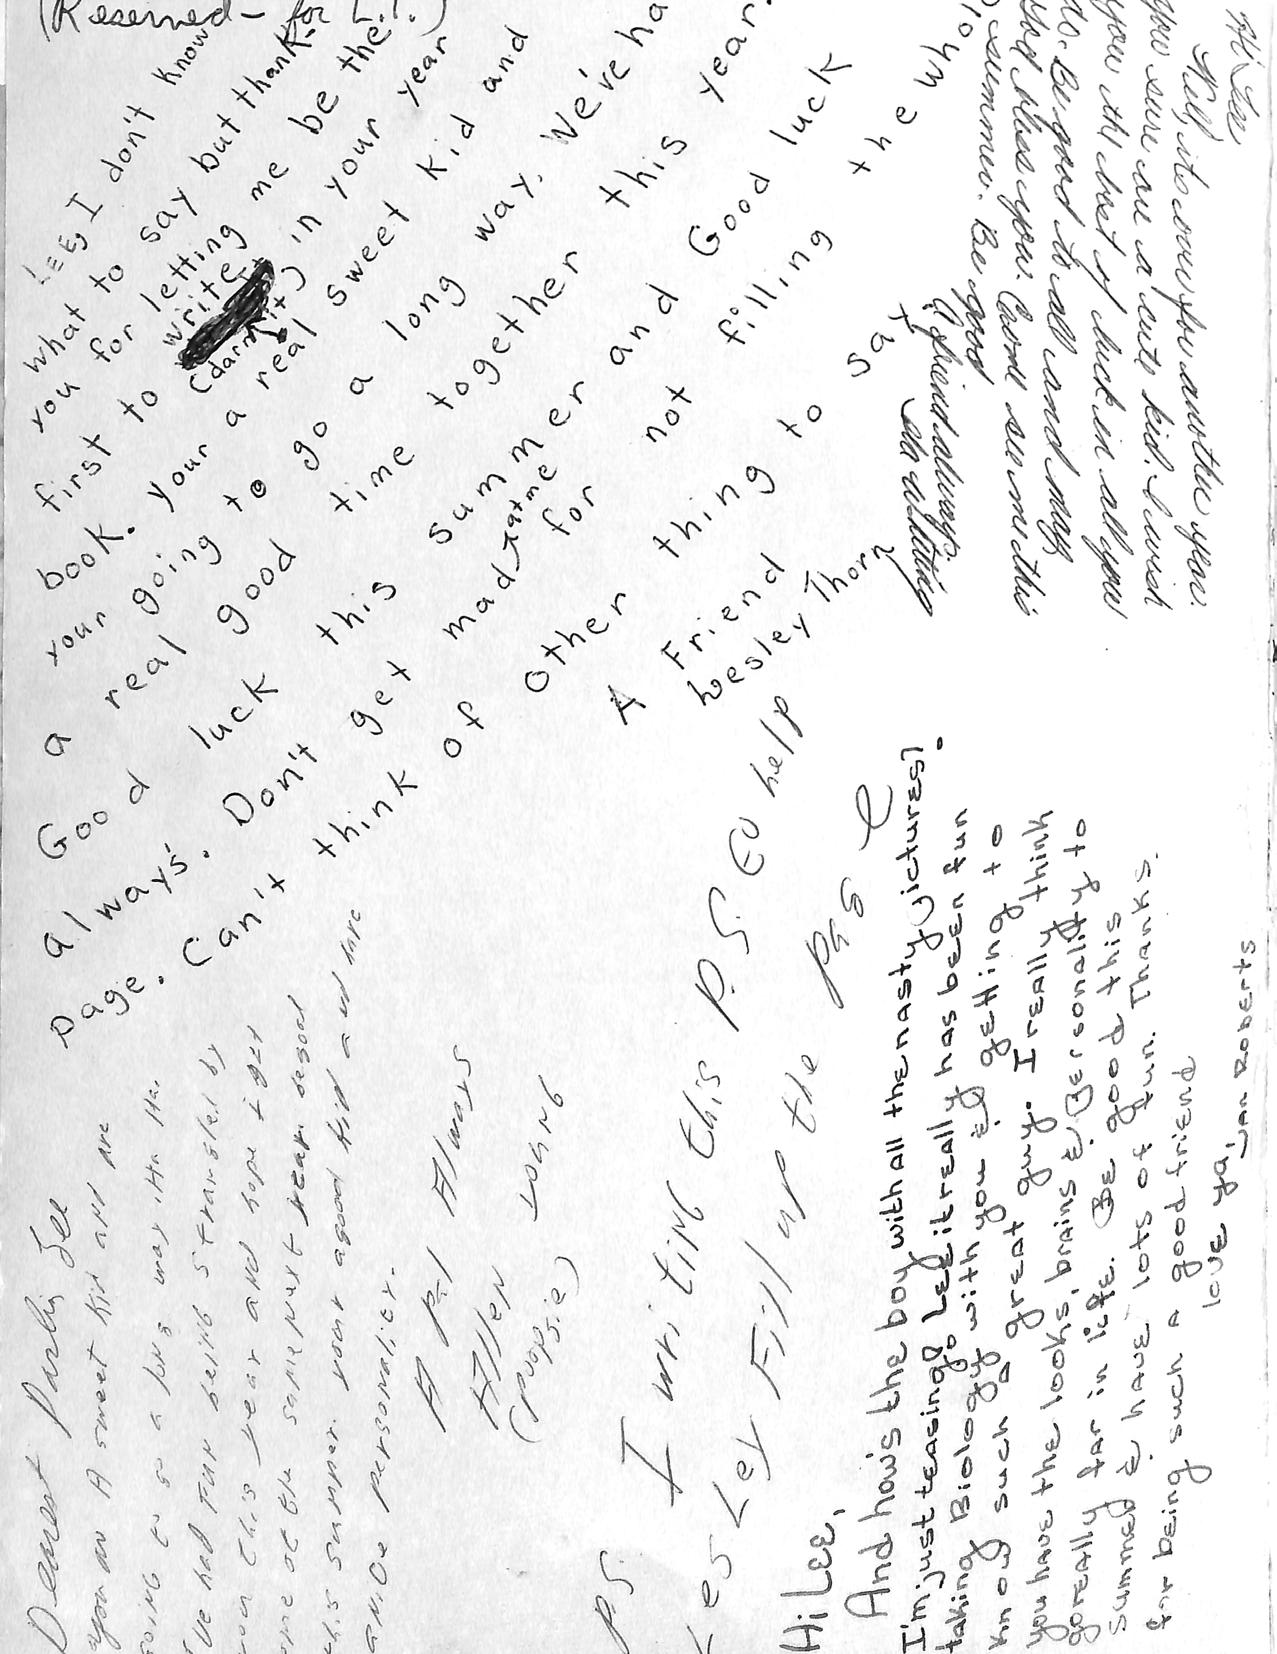 (Reserved - for L.!.)
Lee, I don't know
what to say but thank-
you for letting me be the
first to write in your year
(darn it)
book. Your a real sweet kid and
your going to go a long way. We've ha
a real good time together this year.
Good luck this summer and Good luck
always. Don't get mad at me for not filling the whole
page. Can't think of other thing to say
A Friend
Lesley Thorn
Hi Lee
Well, its over for another year.
you sure are a cute kid. I wish
you the best of luck in all you
do. Be good to all and may
God bless you. Come see me this
summer. Be good.
A friend always
Dearest Parly Lee
you ar A sweet kid and are
going to go a long way Ha Ha.
I've had Fun being strangled by
you this year and hope I get
one of the same next year. be good
this summer. your a good kid and have
a nice personality.
A Pal Always
Allen Young
(Popsie)
P.S. I writing this P.S. to help
Lesley Fill up the page
Hi Lee,
And how's the boy with all the nasty pictures?
I'm just teasing! Lee it really has been fun
taking Biology with you & getting to
know such a great guy. I really think
you have the looks, brains & personality to
go really far in life. Be good this
summer & have lots of fun. Thanks
for being such a good friend
love ya,
Jan Roberts